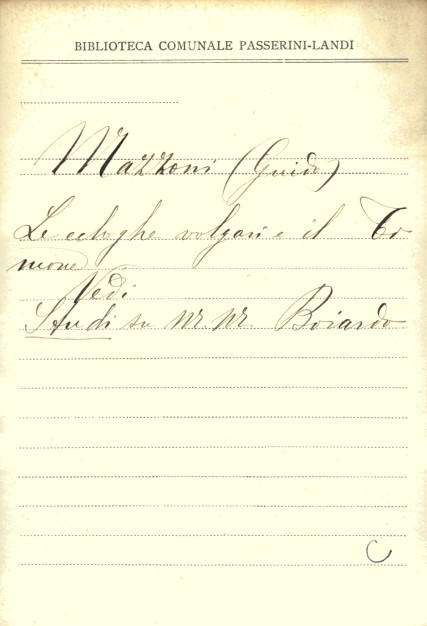 BIBLIOTECA COMUNALE PASSERINI-LANDI
Mazzoni (Guido)
Le ecloghe volgari e il Ti
mone
Vedi
Studi su M. M. Boiardo
C